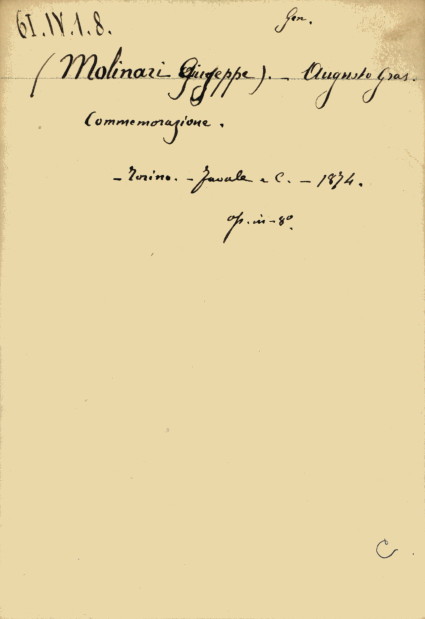 61.IV.1.8.
Gen.
(Molinari Giuseppe). – Augusto Gras.
Commemorazione.
– Torino. – Favale e C. – 1874.
op. in-8º.
C.